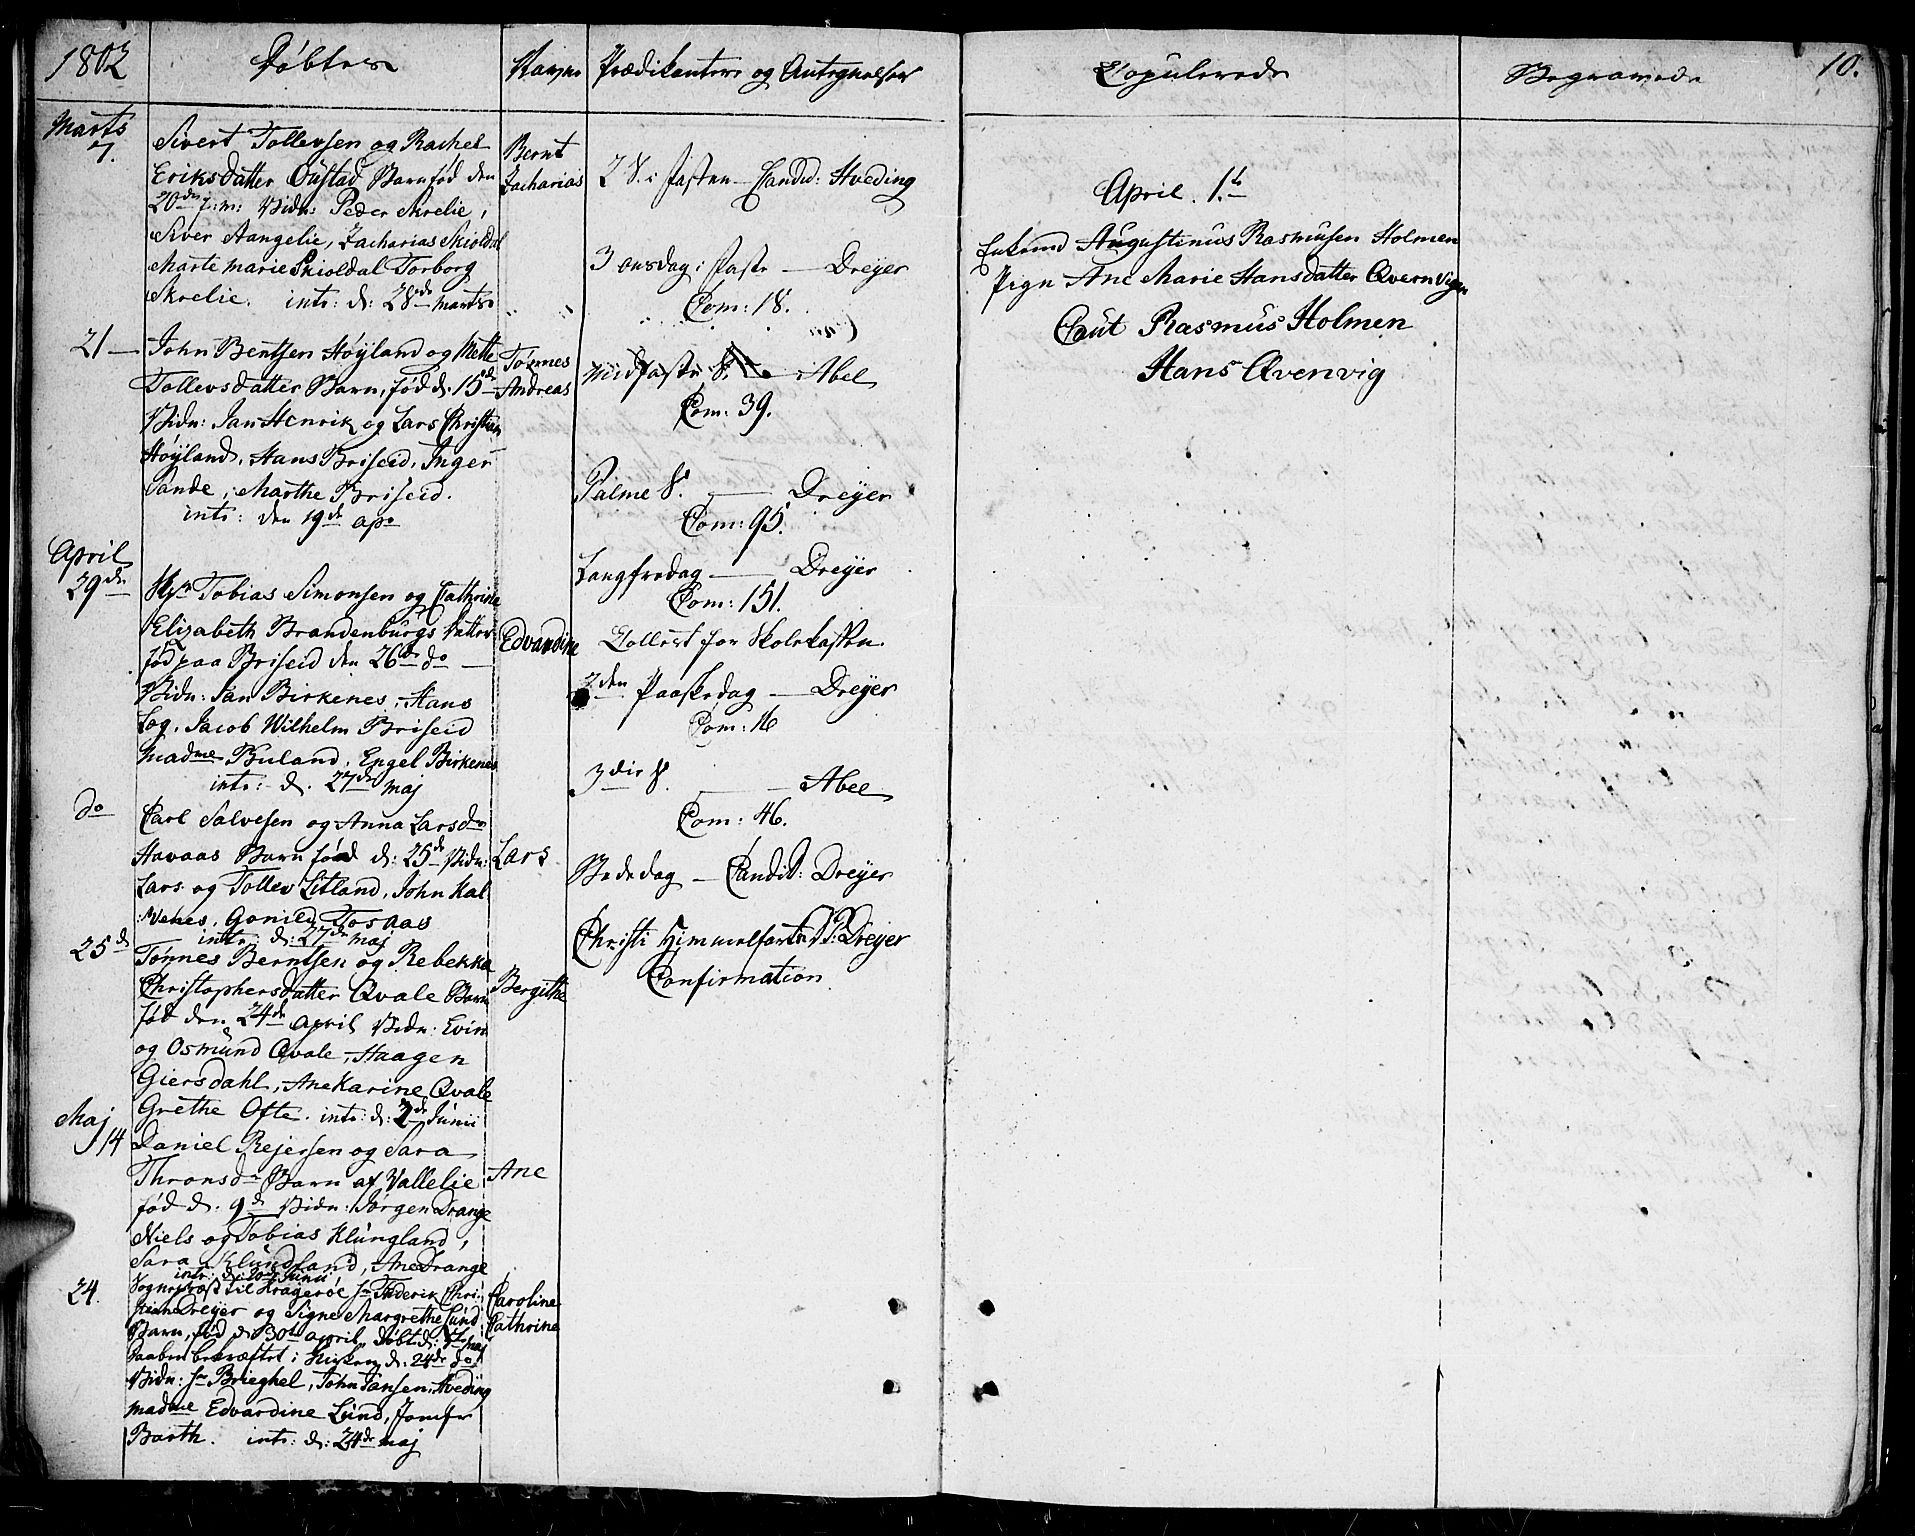 1802
Døbte
Navne
Prædikantere og Antegnelser
Copulerede
Begravede
10.
Marts
7.
Sivert Tollevsen og Rachel
Eriksdatter Øustad Barn fød den
20de f: m: Vidn: Peder Skrelie,
Siver Aangelie, Zacharias Skioldal
Marte Marie Skioldal Torborg
Skrelie. intr: d: 28de Marts
Bernt
Zacharias
21
John Bentsen Høyland og Mette
Tollevsdatter Barn, fød d: 15de
Vidn: Jan Henrik og Lars Christian
Høyland, Hans Briseid, Inger
Sande, Marthe Briseid.
intr: den 19de apr
Tønnes
Andreas
April
29de
Tobias Simonsen og Cathrine
Elizabeth Brandenburgs Datter
fød paa Briseid den 26de do
Vidn: Jan Birkenes, Hans
Log, Jacob Wilhelm Briseid
Madme Buland, Engel Birkenes
intr: d. 27de Maj
Edvardine
do
Carl Salvesen og Anna Larsdr
Havaas Barn fød d: 25de Vidn:
Lars og Tollev Litland, John Kal
:venes, Gonild Tosaas
intr: d: 27de Maj
Lars
25d
Tønnes Berntsen og Rebekka
Christophersdatter Qvale Barn
fød den 24de April Vidn: Evin
og Osmund Qvale, Haagen
Giersdahl, Ane Karine Qvale
Grethe Ofte. intr: d: 2de Junii
Bergithe
Maj
14
Daniel Rejersen og Sara
Thronsdr Barn af Vallelie
fød d. 9de Vidn: Jørgen Drange
Niels og Tobias Klungland,
Sara Klundland, Ane Drange
intr: d: Junii
Ane
24.
Sogneprest til Kragerøe Hr Frederik Chri:
stian Dreyer og Signe Margrethe Lund
Barn, fød d 30te April, døbt d: Maj
Daaben bekræftet i Kirken d. 24de do
Vidn: Hr Brieghel, John Jansen, Hveding
Madme Edvardine Lund, Jomfr
Barth. intr: d: 24de Maj
Caroline
Cathrine
2 S. i Fasten — Candid: Hveding
3 onsdag i Faste — Dreyer
Com: 18.
Midfaste S. — Abel
Com: 39.
Palme S. — Dreyer
Com: 95.
Langfredag — Dreyer
Com: 151.
Collect for Skolekassen
2den Paaskedag — Dreyer
Com: 16
3die S. — Abel
Com: 46.
Bededag — Candid: Dreyer
Christi Himmelfarts D: Dreyer
Confirmation
April. 1.
Enkemd Augustinus Rasmusen Holmen
Pign Ane Marie Hansdatter Qvernvign
Caut Rasmus Holmen
Hans Qvenvig